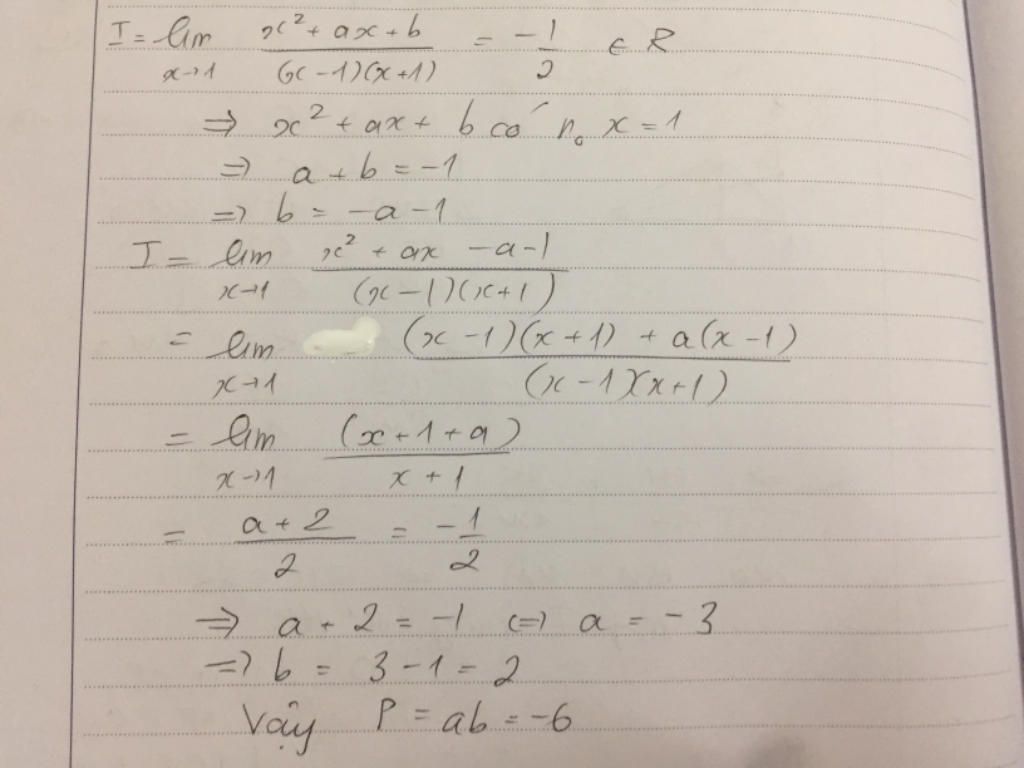 I = lim x→1 (x² + ax + b)/((x-1)(x+1)) = -1/2 ∈ R
⇒ x² + ax + b có n₀ x = 1
⇒ a + b = -1
⇒ b = -a - 1
I = lim x→1 (x² + ax - a - 1)/((x-1)(x+1))
= lim x→1 ((x-1)(x+1) + a(x-1))/((x-1)(x+1))
= lim x→1 (x+1+a)/(x+1)
= (a+2)/2 = -1/2
⇒ a + 2 = -1 ⇔ a = -3
⇒ b = 3 - 1 = 2
Vậy P = ab = -6